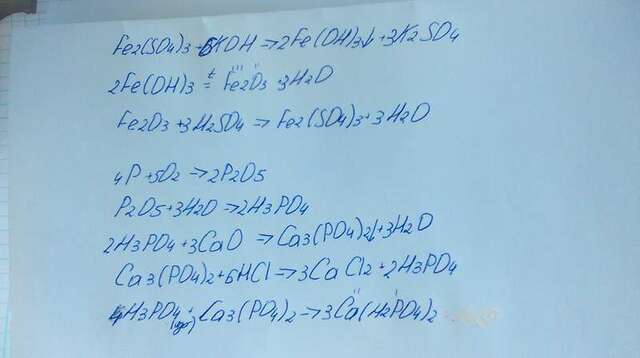 Fe2(SO4)3 + 6KOH → 2Fe(OH)3↓ + 3K2SO4
2Fe(OH)3 t= Fe2O3 + 3H2O
Fe2O3 + 3H2SO4 → Fe2(SO4)3 + 3H2O
4P + 5O2 → 2P2O5
P2O5 + 3H2O → 2H3PO4
2H3PO4 + 3CaO → Ca3(PO4)2↓ + 3H2O
Ca3(PO4)2 + 6HCl → 3CaCl2 + 2H3PO4
4H3PO4 + Ca3(PO4)2 → 3Ca(H2PO4)2